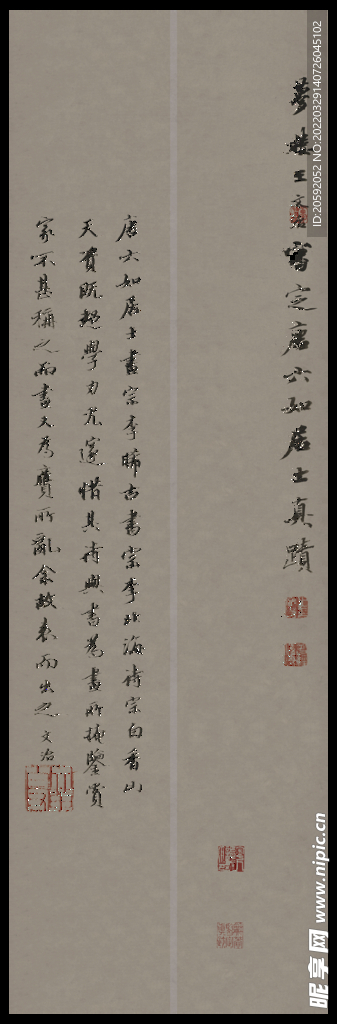 夢楼王文治審定唐六如居士真蹟
唐六如居士畫宗李晞古書宗李北海詩宗白香山
天資既超學力尤邃惜其詩與書為畫所掩鑒賞
家不甚稱之而畫又為贋所亂余故表而出之文治
ID:20592052 NO:20220329140726045102
昵享网 www.nipic.cn